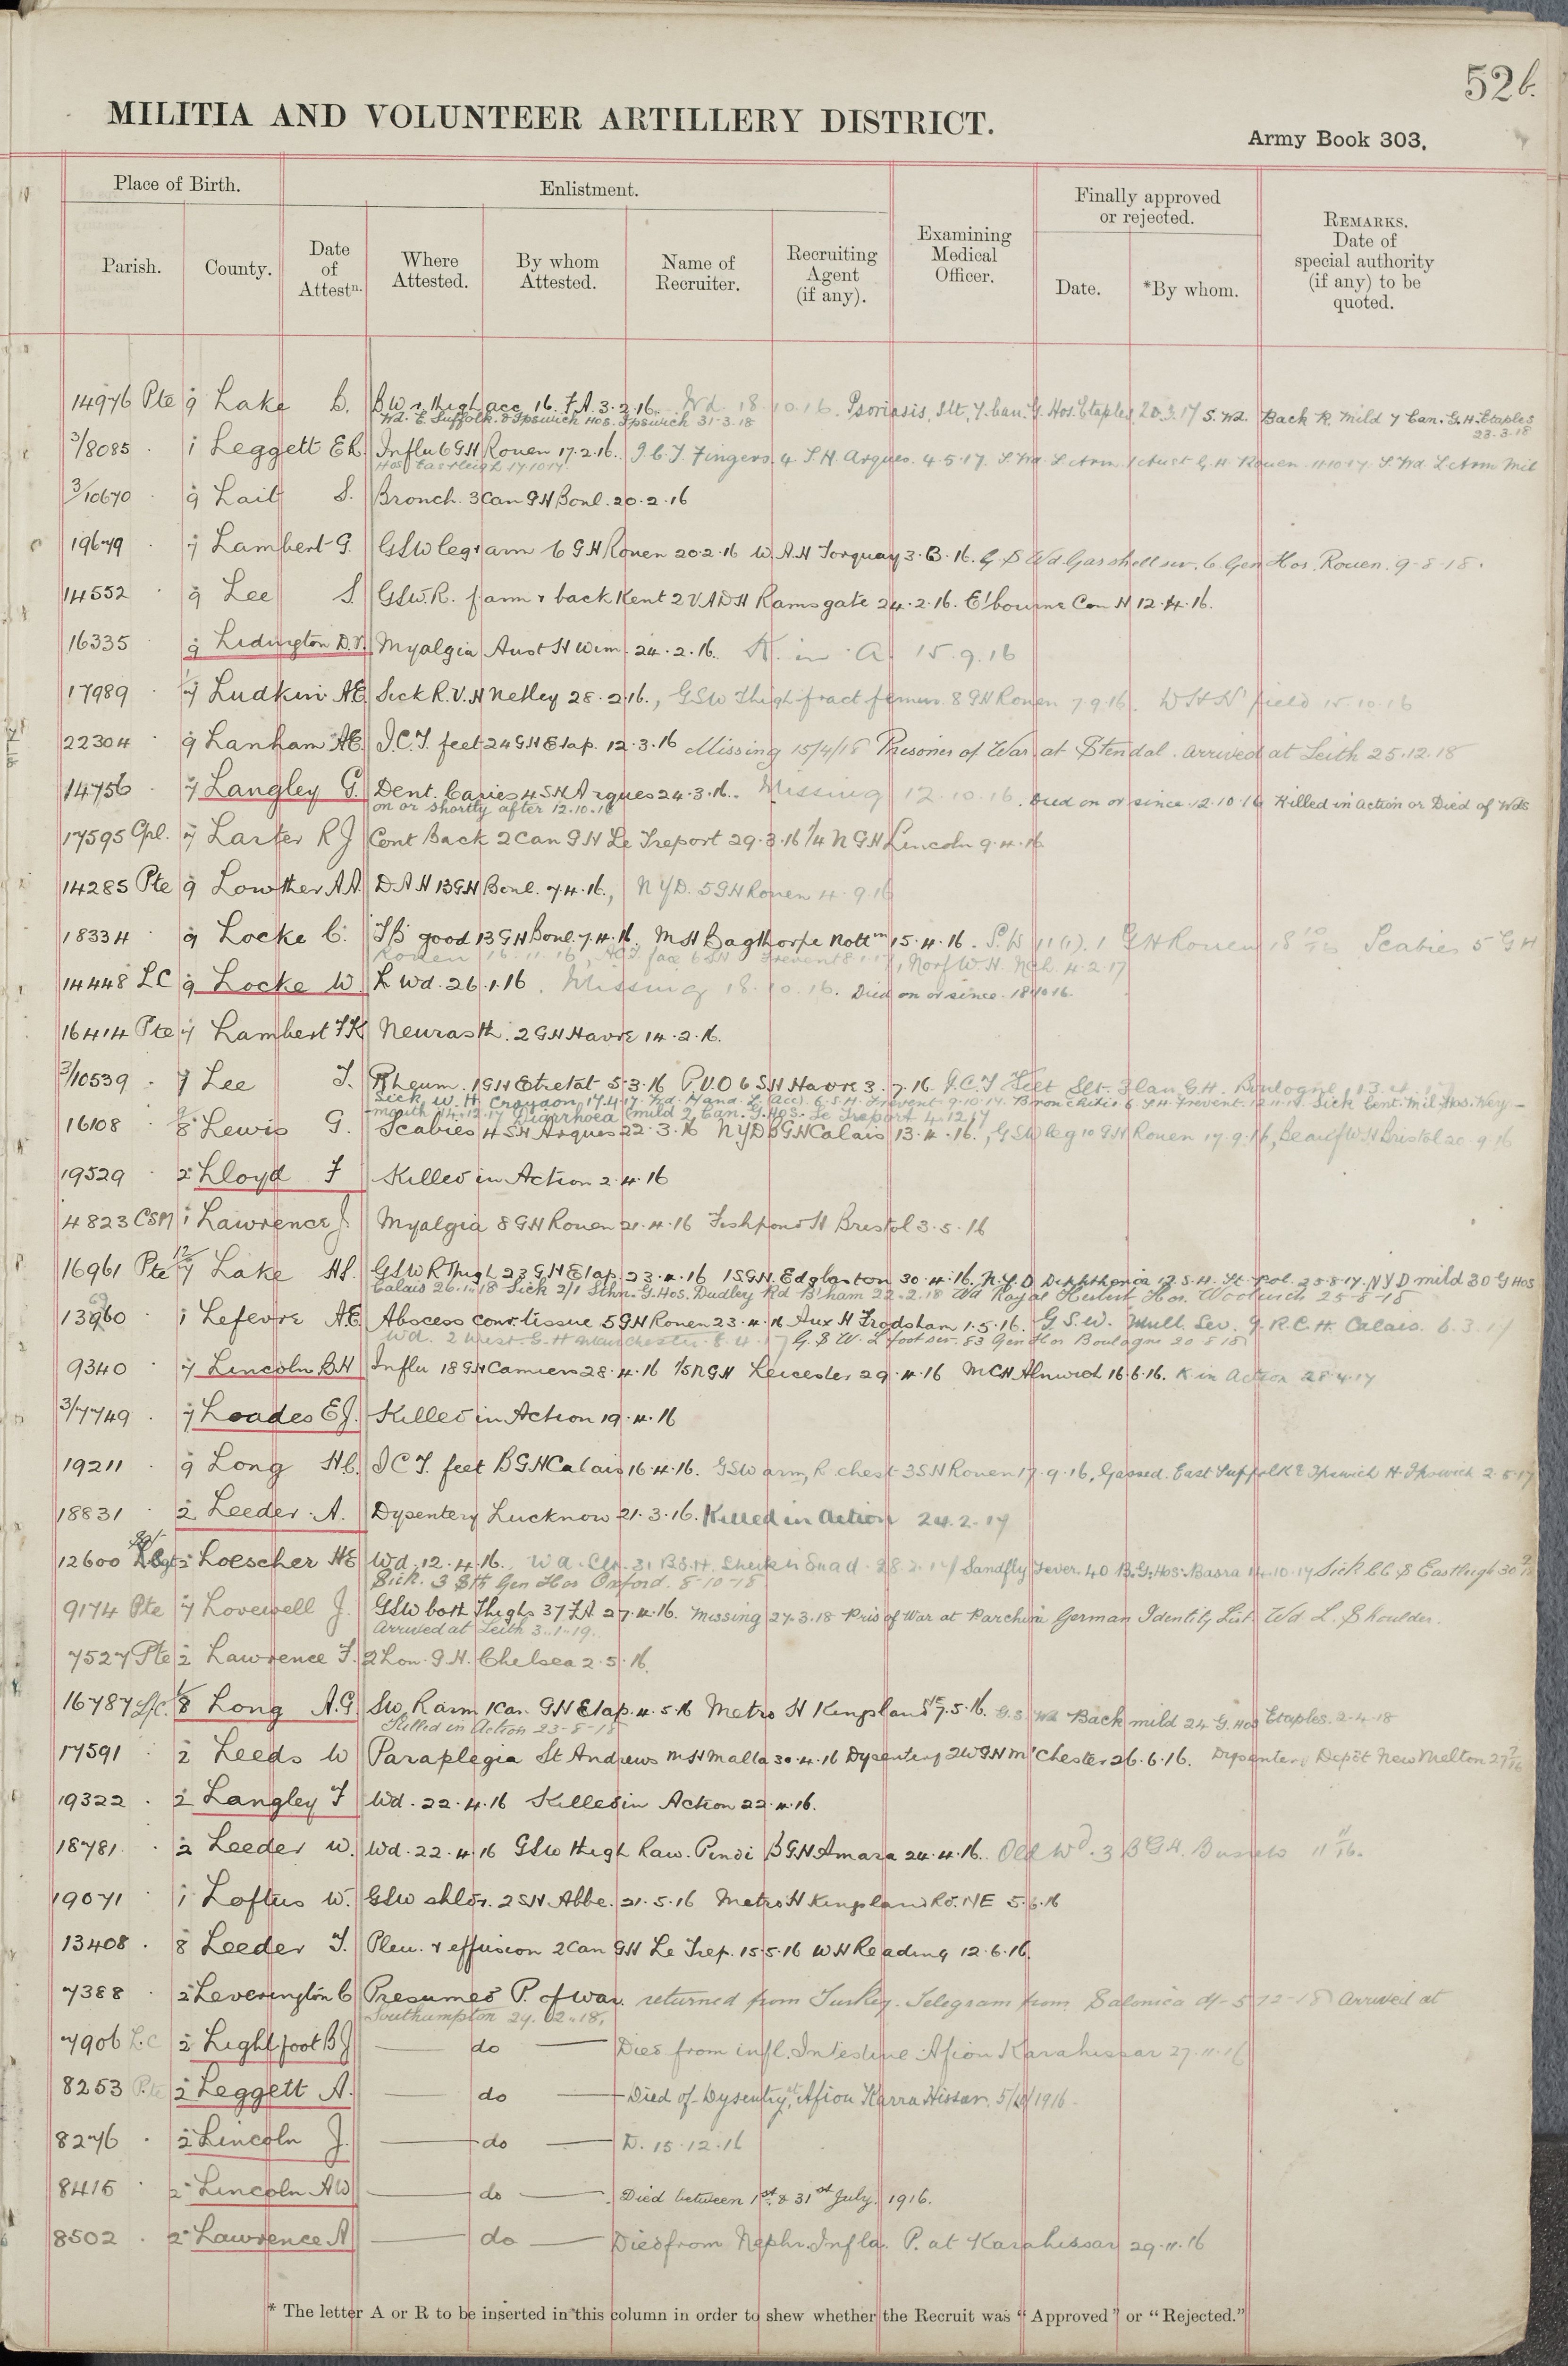 52b.
MILITIA AND VOLUNTEER ARTILLERY DISTRICT.
Army Book 303.
Place of Birth. Enlistment. Finally approved or rejected.
Parish. County. Date of Attestn. Where Attested. By whom Attested. Name of Recruiter. Recruiting Agent (if any). Examining Medical Officer. Date. *By whom. REMARKS. Date of special authority (if any) to be quoted.
14976 Pte 9 Lake B. B W r. thigh acc 16. F.A. 3.2.16. Wd. 18.10.16. Psoriasis, Slt, 7. Can. G. Hos. Etaples 20.3.17 S. Wd. Back R. Mild 7 Can. G. H. Etaples 23.3.18
Wd. E. Suffolk & Ipswich Hos. Ipswich 31-3.18
3/8085 1 Leggett E R. Influ 6 GH Rouen 17.2.16. I.C.T. Fingers. 4 S.H. Arques. 4.5.17. S. Wd. L Arm. 1 Aust G. H. Rouen 11.10.17. S. Wd. L Arm Mil
Hos Eastleigh 17.10.17
3/10670 9 Lait S. Bronch. 3 Can GH Boul. 20.2.16
19679 7 Lambert G. GSW leg & arm 6 GH Rouen 20.2.16 W.A.H Torquay 3.3.16. G S Wd Gas shell sev. 6. Gen Hos. Rouen. 9-8-18.
14552 9 Lee S. GSW. R. f arm & back Kent 2 VADH Ramsgate 24.2.16. E'bourne Con H 12.4.16.
16335 9 Lidington D.V. Myalgia Aust H Wim. 24.2.16. K. in A. 15.9.16
17989 7 Ludkin AE. Sick R.V.H Netley 28.2.16., GSW Thigh fract femur. 8 GH Rouen 7.9.16. W H N'field 15.10.16
22304 9 Lanham AE. I.C.T. feet 24 GH Etap. 12.3.16 Missing 15/4/18 Prisoner of War at Stendal. arrived at Leith 25.12.18
14756 7 Langley G. Dent. Caries 4 SH Arques 24.3.16. Missing 12.10.16. Died on or since 12.10.16 Killed in action or Died of Wds
on or shortly after 12.10.16
17595 Cpl. 7 Larter R J Cont Back 2 Can GH Le Treport 29.3.16 1/4 N GH Lincoln 9.4.16
14285 Pte 9 Lowther A.A. D A H 13 GH Boul. 7.4.16., NYD. 5 GH Rouen 4.9.16
18334 9 Locke C. TB good 13 GH Boul. 7.4.16. MH Bagthorpe Nottm 15.4.16. 1 GH Rouen Scabies 5 GH
Rouen 16.11.16, face 6 SH Frevent 8.1.17, Norf W. H. Nch. 4.2.17
14448 LC 9 Locke W. L Wd. 26.1.16. Missing 18.10.16. Died on or since. 18.10.16.
16414 Pte 7 Lambert FK Neurasth. 2 GH Havre 14.2.16.
3/10539 7 Lee J. Rheum. 1 GH Etretat 5.3.16 P.U.O 6 SH Havre 3.7.16. I.C.T Feet Slt. 3 Can G.H. Boulogne
Sick W. H. Croydon 17.4.17. Wd. Hand. L (acc). 6. S.H. Frevent 9.10.17. Bronchitis 6. S.H. Frevent. 12.11.17. Sick Cent. Mil. Hos. Wey-
mouth 14.12.17 Diarrhoea (mild 2 Can. G. Hos. Le Treport 4.12.17
16108 8 Lewis G. Scabies 4 SH Arques 22.3.16 NYD B GH Calais 13.4.16., GSW leg 10 GH Rouen 17.9.16, Beauf W H Bristol 20.9.16
19529 2 Lloyd F Killed in Action 2.4.16
4823 CSM 1 Lawrence J. Myalgia 8 GH Rouen 21.4.16 Fishponds H Bristol 3.5.16
16961 Pte 12/7 Lake HS. GSW R Thigh 23 GH Etap. 23.4.16 1 S GH. Edgbaston 30.4.16. N.Y.D Diphtheria 12 S.H. St Pol. 25.8.17. NYD mild 30 G Hos
Calais 26.1.18 Sick 2/1 Sthn. G. Hos. Dudley Rd B'ham 22.2.18 Wd Royal Herbert Hos. Woolwich 25-8-18
13960 1 Lefevre A.E. Abscess conn. tissue 5 GH Rouen 23.4.16 Aux H Frodsham 1.5.16. G.S.W. Mult. Sev. 9. R.C.H. Calais. 6.3.17
Wd. 2 West. G. H Manchester 8.4.17 G. S W. L foot sev. 83 Gen Hos Boulogne 20.8.18
9340 7 Lincoln BH Influ 18 GH Camiers 28.4.16 1/5 N GH Leicester 29.4.16 MCH Alnwich 16.6.16. K in Action 28.4.17
3/7749 7 Loades E J. Killed in Action 19.4.16
19211 9 Long H C. I C T. feet B GH Calais 16.4.16. GSW arm, R chest 3 SH Rouen 17.9.16, Gassed. East Suffolk & Ipswich H. Ipswich 2.5.17
18831 2 Leeder A. Dysentery Lucknow 21.3.16. Killed in Action 24.2.17
12600 2 Loescher HE Wd. 12.4.16. 31 B.S.H. Sheikh Saad 28.2.17 Sandfly Fever. 40 B. G. Hos. Basra 14.10.17 Sick
Sick. 3 Sth Gen Hos Oxford. 8-10-18
9174 Pte 7 Lovewell J. GSW both Thighs 37 F.A 27.4.16. Missing 27.3.18 Pris of War at Parchim German Identity List Wd L. Shoulder.
Arrived at Leith 3.1.19.
7527 Pte 2 Lawrence F. 2 Lon. G. H. Chelsea 2.5.16.
16787 L/C. 8 Long A.G. SW R arm 1 Can GH Etap. 4.5.16 Metro H Kingsland 7.5.16. G.S. Wd Back mild 24 G. Hos Etaples. 2-4-18
Killed in Action 23-8-18
17591 2 Leeds W Paraplegia St Andrews MH Malta 30.4.16 Dysentery 2 W GH M'Chester 26.6.16. Dysentery Depôt New Melton
19322 2 Langley F Wd. 22.4.16 Killed in Action 22.4.16.
18781 2 Leeder W. Wd. 22.4.16 GSW thigh Raw. Pindi B GH Amara 24.4.16. Old Wd. 3 B GH.
19071 1 Loftus W. GSW shldr. 2 SH Abbe. 21.5.16 Metro H Kingsland Rd. NE 5.6.16
13408 8 Leeder J. Pleu. & effusion 2 Can GH Le Trep. 15.5.16 WH Reading 12.6.16.
7388 2 Leverington C Presumed P. of War. returned from Turkey. Telegram from Salonica d/- 5-12-18 Arrived at
Southampton 24.12.18.
7906 L.C 2 Lightfoot B J do Died from infl. Intestine Afion Karahissar 27.11.16
8253 Pte 2 Leggett A. do Died of Dysentry, at Afion Karra Hissar. 5/10/1916
8276 2 Lincoln J. do D. 15.12.16
8415 2 Lincoln AW do Died between 1st & 31st July, 1916.
8502 2 Lawrence A do Died from Nephr. Infla. P. at Karahissar 29.11.16
* The letter A or R to be inserted in this column in order to shew whether the Recruit was "Approved" or "Rejected."